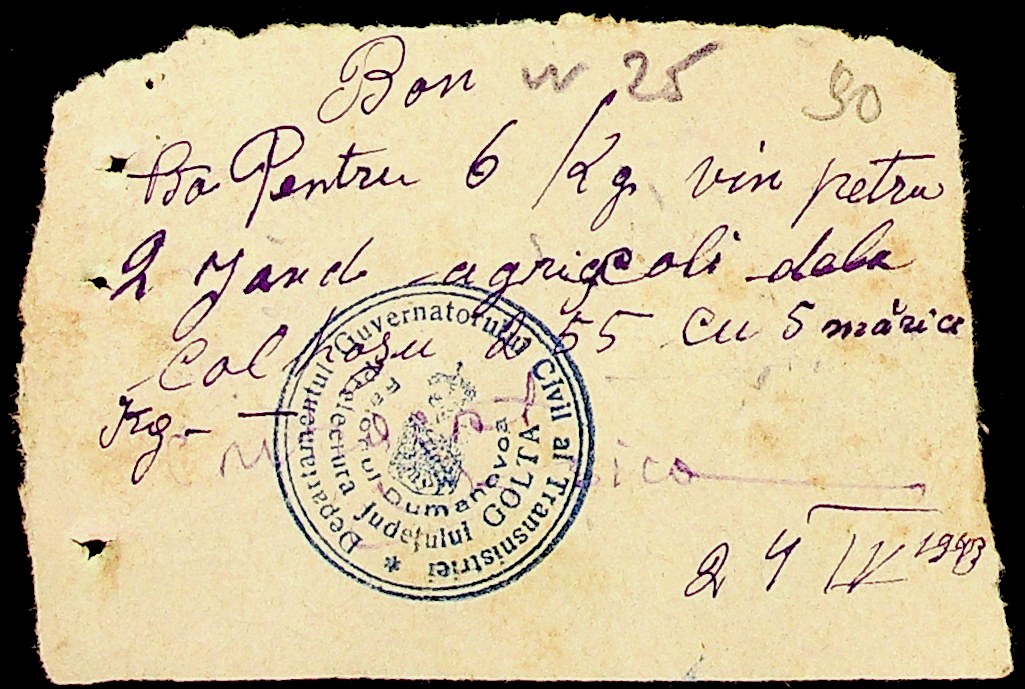 Bon N 25 90
Bo Pentru 6 Kg vin petru
2 Jand agricoli dela
Colhosu d 55 cu 5 mărici
Kg. —
24 IV 1943
Departamentul Guvernatorului Civil al Transnistriei *
Prefectura Județului GOLTA
Raionul Dumanovca